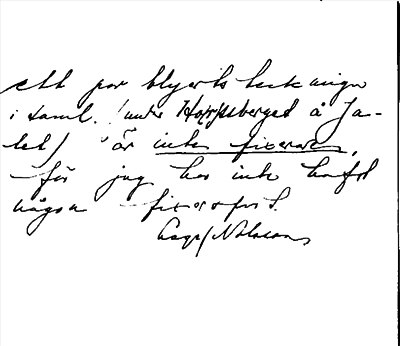 ett par blyerts teckningar
i saml. (under Hoppsberget å Ja-
let) är inte fixerade,
för jag har inte haft
någon fixersprit.
Nilsson